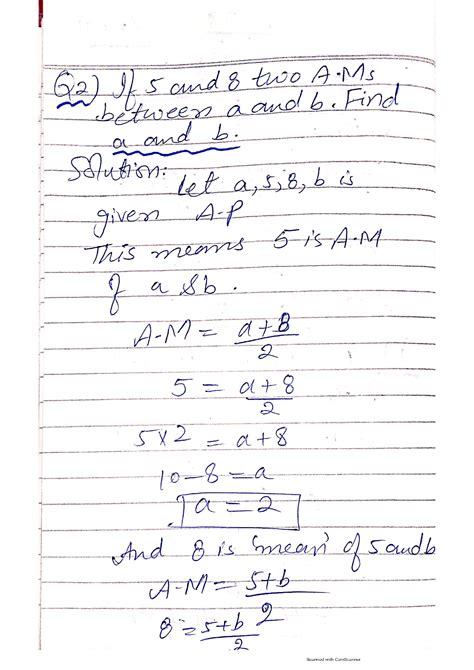 Q2) If 5 and 8 two A.Ms
between a and b. Find
a and b.
Solution:
let a, 5, 8, b is
given A-P
This means 5 is A.M
of a & b.
A-M = a+8/2
5 = a+8/2
5x2 = a+8
10-8 = a
a = 2
And 8 is 'mean' of 5 and b
A-M = 5+b/2
8 = 5+b/2
Scanned with CamScanner